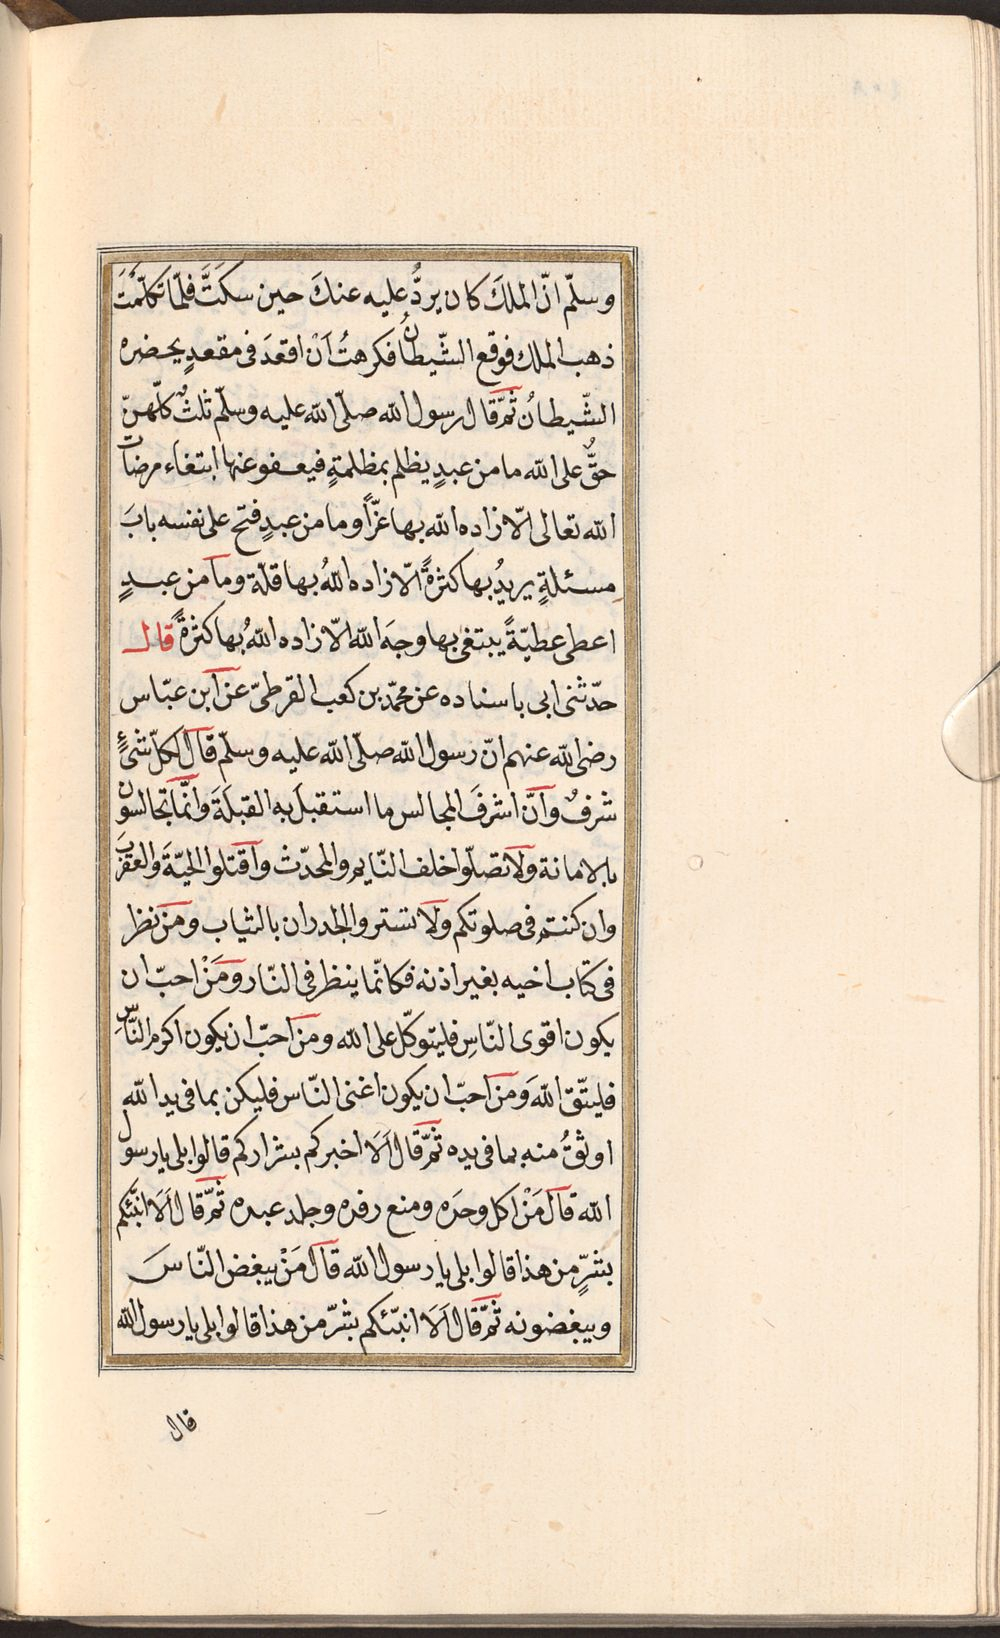 وسلّم انّ الملكَ كان يردُّ عليه عنكَ حين سكتَّ فلمّا تكلّمتَ
ذهب الملك فوقع الشّيطانُ فكرهتُ اَنْ اقعدَ فى مقعدٍ يحضره
الشّيطانُ ثمّ قال رسول الله صلّى الله عليه وسلّم ثلثٌ كلّهنّ
حقٌّ على الله ما من عبدٍ يظلم بمظلمةٍ فيعفو عنها ابتغاء مرضات
الله تعالى الّا زاده الله بها عزّاً وما من عبدٍ فتح على نفسه بابَ
مسئلةٍ يريدُ بها كثرةً الّا زاده اللهُ بها قلّة وما من عبدٍ
اعطى عطيّةً يبتغى بها وجهَ الله الّا زاده اللهُ بها كثرةً قال
حدّثنى ابى باسناده عن محمّد بن كعب القرظىّ عن ابن عبّاس
رضى الله عنهم انّ رسول الله صلّى الله عليه وسلّم قال لكلّ شئٍ
شرفٌ وانّ اشرفَ المجالس ما استقبلَ به القبلَةَ وانّما تجالسون
بالامانة ولا تصلّوا خلف النّايم والمحدّث واقتلوا الحيّةَ والعقربَ
وان كنتم فى صلوتكم ولا تستروا الجدران بالثياب ومن نظر
فى كتاب اخيه بغير اذنه فكانّما ينظر فى النّار ومَنْ احبّ ان
يكون اقوى النّاسِ فليتوكّل على الله ومن احبّ ان يكون اكرم النّاسِ
فليتّق اللهَ ومن احبّ ان يكون اغنى النّاس فليكن بما فى يد الله
اوثقُ منه بما فى يده ثمّ قال اَلَا اخبركم بشراركم قالوا بلى يا رسول
الله قال مَنْ اكل وحدَه ومنع رفده وجلد عبده ثمّ قال اَلَا انبّئكم
بشرٍّ من هذا قالوا بلى يا رسول الله قال مَنْ يبغض النّاسَ
ويبغضونه ثمّ قال اَلَا انبّئكم بشرّ من هذا قالوا بلى يا رسول الله
قال